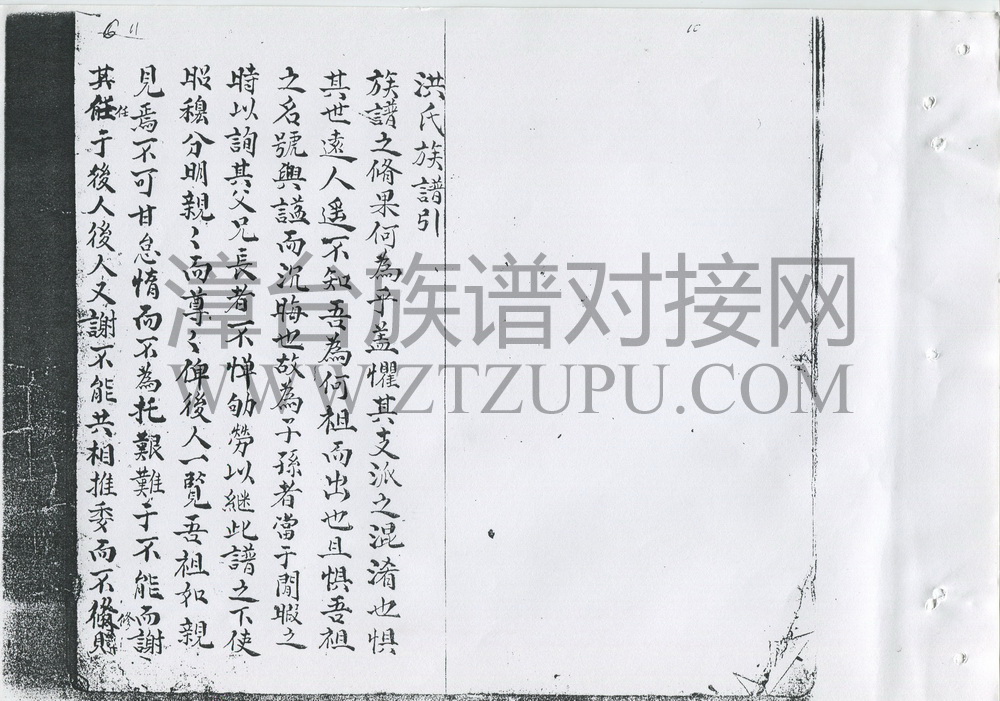 洪氏族譜引
族譜之脩果何為乎盖懼其支派之混淆也惧
其世遠人遥不知吾為何祖而出也且惧吾祖
之名號與諡而沉晦也故為子孫者當于閒暇之
時以詢其父兄長者不惮劬勞以継此譜之下使
昭穆分明親〻而尊〻俾後人一覧吾祖如親
見焉不可甘怠惰而不為托艱難于不能而謝
其任于後人後人又謝不能共相推委而不脩則
任
修
6 11
漳台族谱对接网
WWW.ZTZUPU.COM